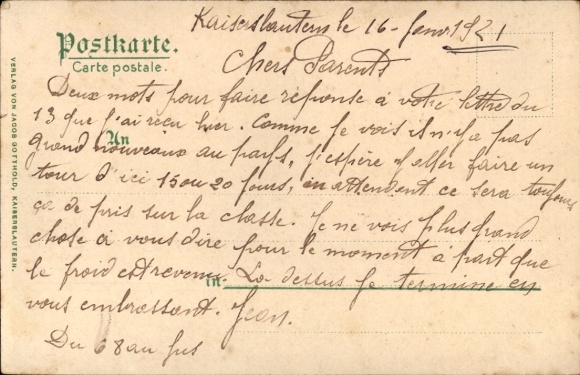 Kaiserslautern le 16 - Janv 1921
Postkarte.
Carte postale.
Chers Parents
Deux mots pour faire réponse à votre lettre du
13 que j'ai reçu hier. Comme je vois il n'y a pas
An
grand nouveaux au pays, j'espère y aller faire un
tour d'ici 15 ou 20 jours, en attendent ce sera toujours
ça de pris sur la classe. Je ne vois plus grand
chose à vous dire pour le moment à part que
le froid est revenu. La dessus je termine en
in
vous embrassant. Jean.
Du 68 au jus
VERLAG VON JACOB GOTTHOLD, KAISERSLAUTERN.